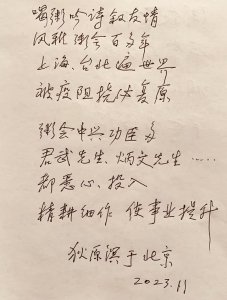 喝粥吟诗叙友情
风雅粥会百多年
上海、台北遍世界
被疫阻挠 复原
粥会中兴功臣多
君武先生、炳文先生……
都悉心、投入
精耕细作 使事业提升
狄原溟于北京
2023.11